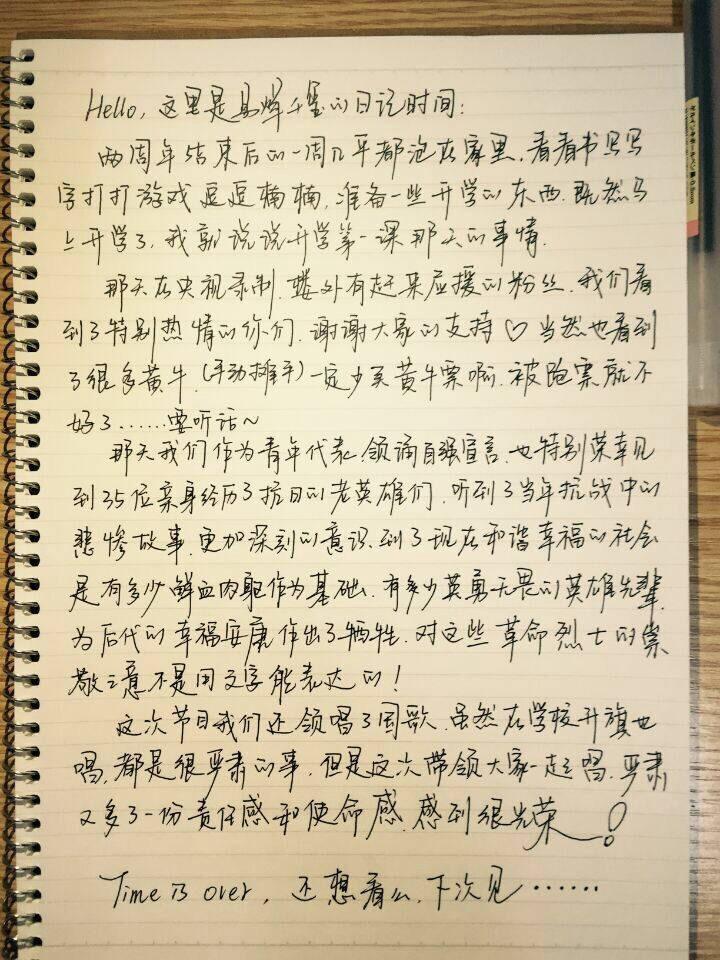 Hello, 这里是易烊千玺的日记时间:
两周年结束后的一周几乎都泡在家里,看看书写写
字打打游戏逗逗楠楠,准备一些开学的东西.既然马
上开学了,我就说说开学第一课那天的事情.
那天在央视录制,楼外有赶来应援的粉丝,我们看
到了特别热情的你们,谢谢大家的支持♡当然也看到
了很多黄牛.(手动摊手)一定少买黄牛票啊,被跑票就不
好了……要听话~
那天我们作为青年代表,领诵自强宣言,也特别荣幸见
到35位亲身经历了抗日的老英雄们,听到了当年抗战中的
悲惨故事,更加深刻的意识到了现在和谐幸福的社会
是有多少鲜血肉躯作为基础,有多少英勇无畏的英雄先辈,
为后代的幸福安康作出了牺牲,对这些革命烈士的崇
敬之意不是用文字能表达的!
这次节目我们还领唱了国歌,虽然在学校升旗也
唱,都是很严肃的事,但是这次带领大家一起唱,严肃
又多了一份责任感和使命感,感到很光荣!
Time is over, 还想看么,下次见……